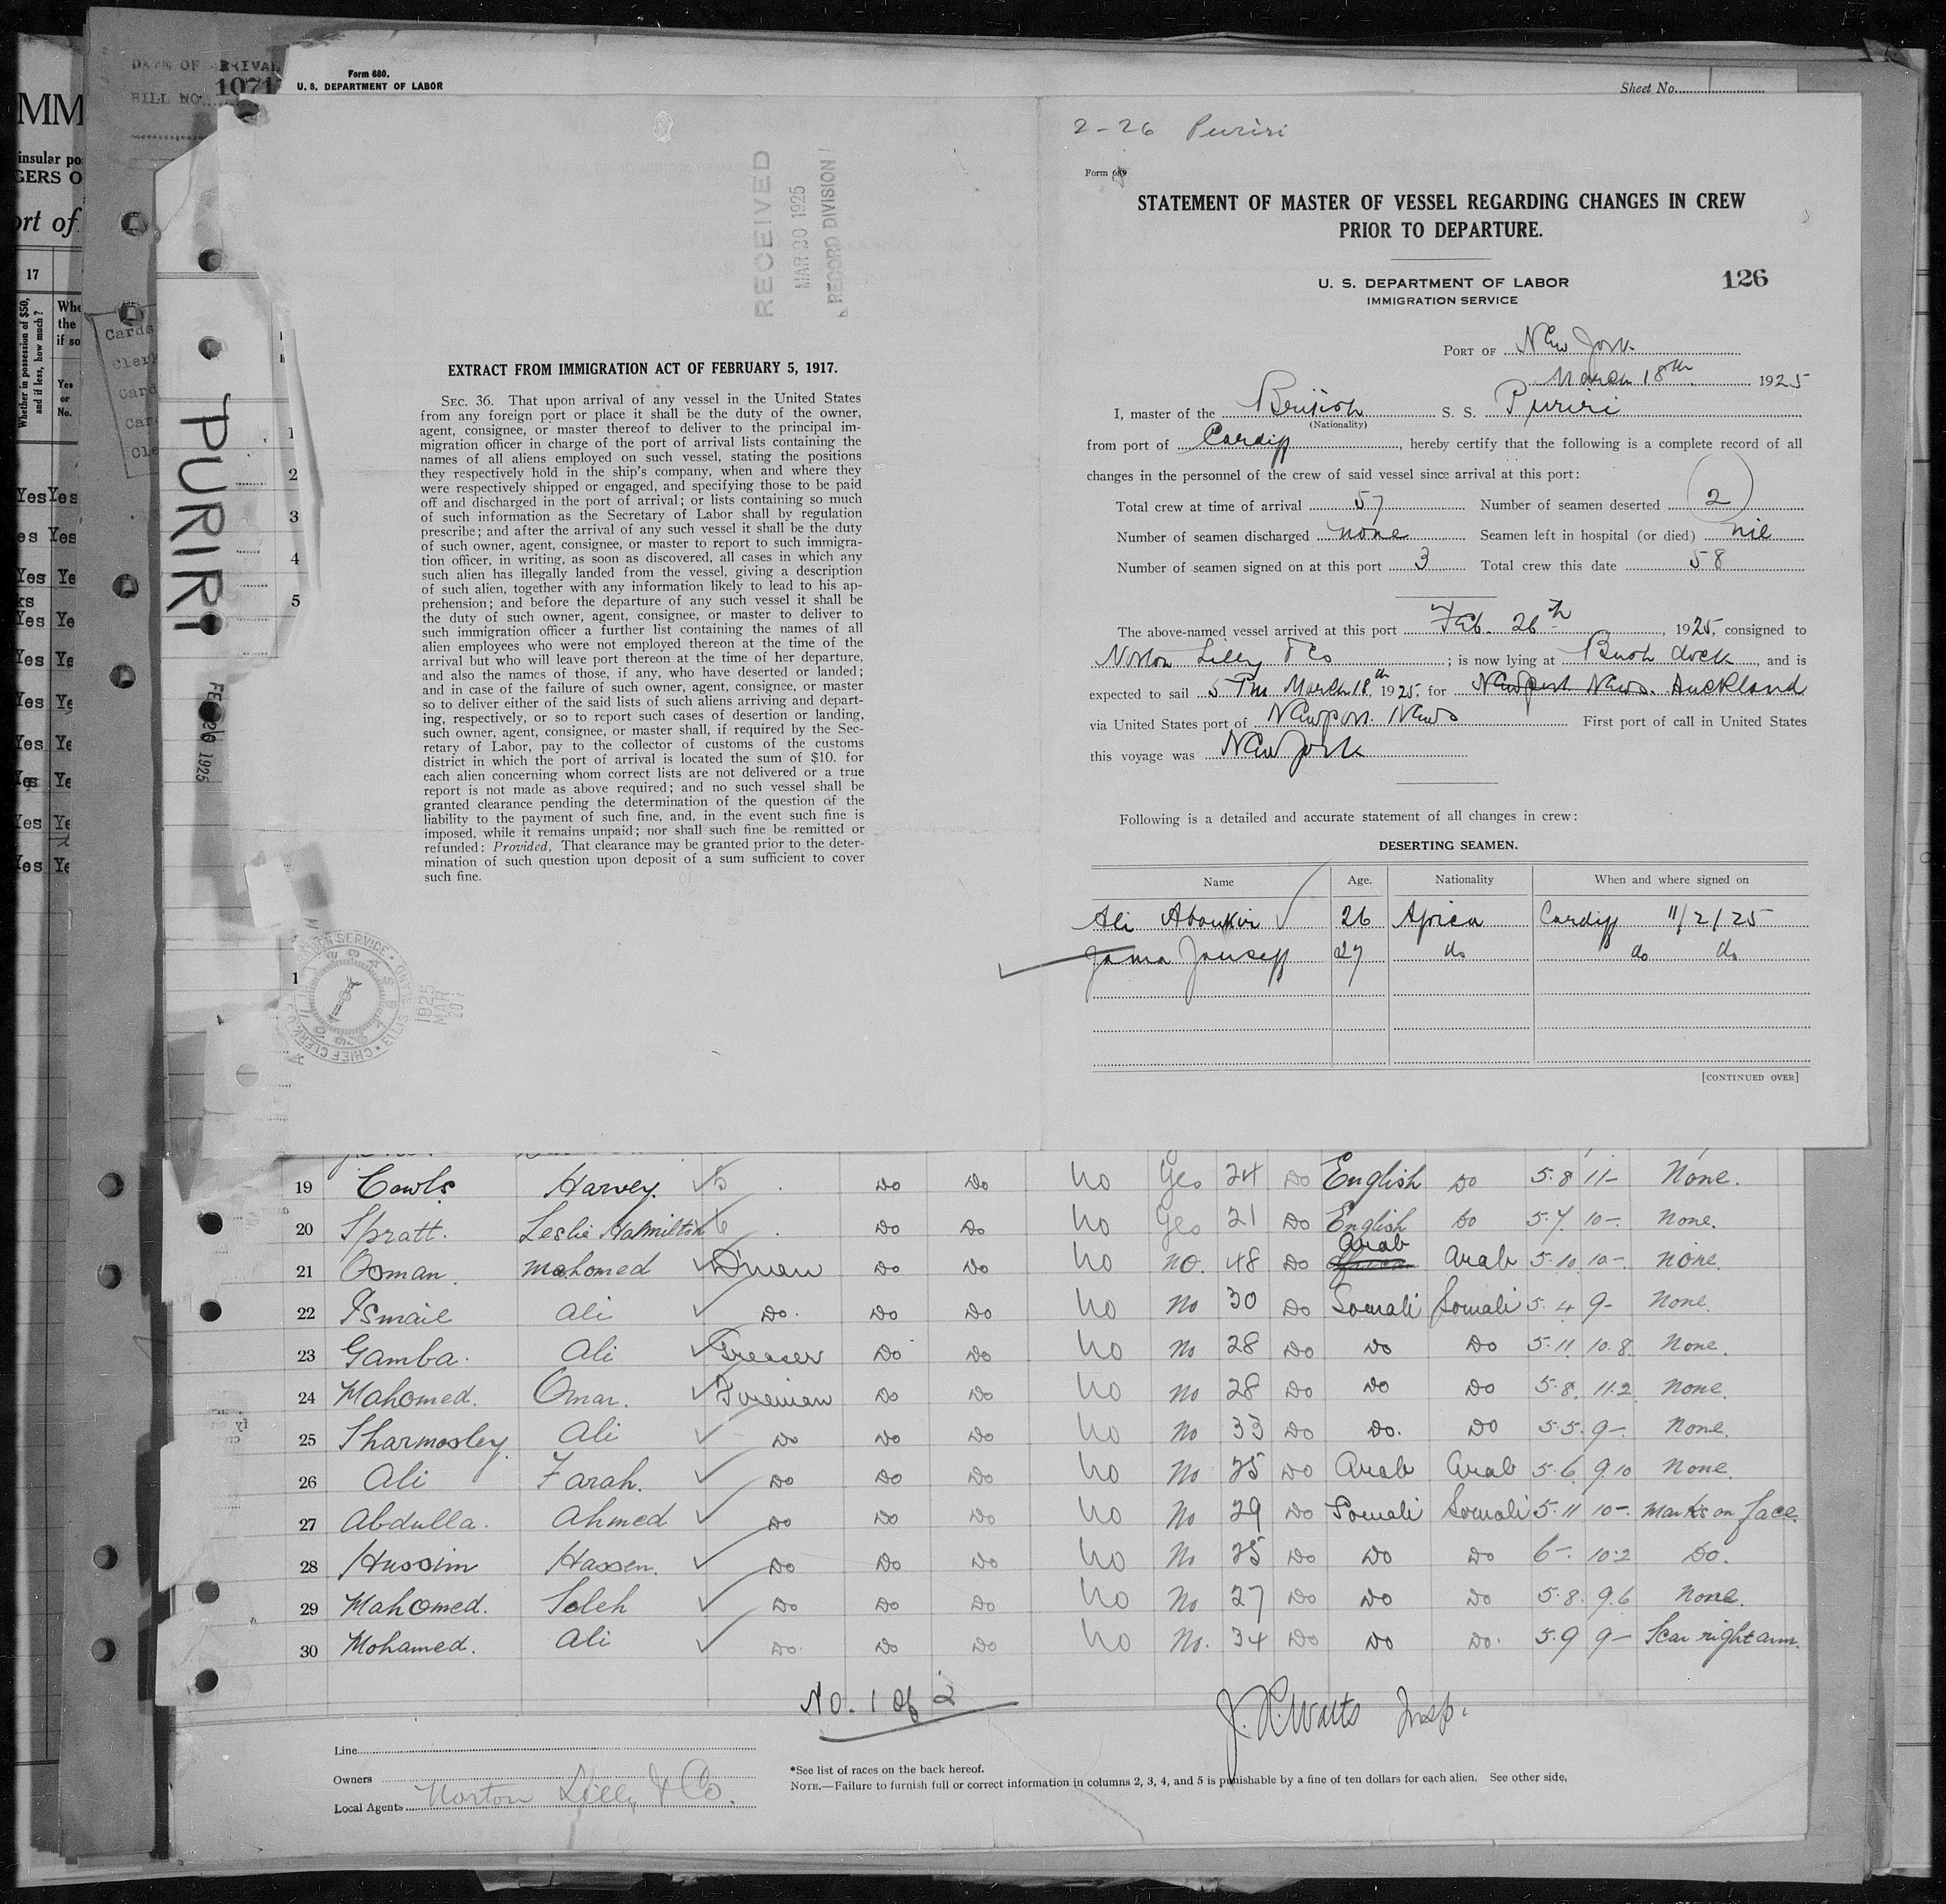 DATE OF ARRIVAL
BILL NO. 1071
Form 680.
U. S. DEPARTMENT OF LABOR
Sheet No. 1
MM
insular po
GERS O
ort of
17
Whether in possession of $50,
and if less, how much?
Whe
the
if so
Yes
or
No.
Cards
Clerk
Card
Car
Cle
PURIRI
FEB 26 1925
1
2
3
4
5
1
RECEIVED
MAR 20 1925
RECORD DIVISION
EXTRACT FROM IMMIGRATION ACT OF FEBRUARY 5, 1917.
SEC. 36. That upon arrival of any vessel in the United States
from any foreign port or place it shall be the duty of the owner,
agent, consignee, or master thereof to deliver to the principal im-
migration officer in charge of the port of arrival lists containing the
names of all aliens employed on such vessel, stating the positions
they respectively hold in the ship's company, when and where they
were respectively shipped or engaged, and specifying those to be paid
off and discharged in the port of arrival; or lists containing so much
of such information as the Secretary of Labor shall by regulation
prescribe; and after the arrival of any such vessel it shall be the duty
of such owner, agent, consignee, or master to report to such immigra-
tion officer, in writing, as soon as discovered, all cases in which any
such alien has illegally landed from the vessel, giving a description
of such alien, together with any information likely to lead to his ap-
prehension; and before the departure of any such vessel it shall be
the duty of such owner, agent, consignee, or master to deliver to
such immigration officer a further list containing the names of all
alien employees who were not employed thereon at the time of the
arrival but who will leave port thereon at the time of her departure,
and also the names of those, if any, who have deserted or landed;
and in case of the failure of such owner, agent, consignee, or master
so to deliver either of the said lists of such aliens arriving and depart-
ing, respectively, or so to report such cases of desertion or landing,
such owner, agent, consignee, or master shall, if required by the Sec-
retary of Labor, pay to the collector of customs of the customs
district in which the port of arrival is located the sum of $10. for
each alien concerning whom correct lists are not delivered or a true
report is not made as above required; and no such vessel shall be
granted clearance pending the determination of the question of the
liability to the payment of such fine, and, in the event such fine is
imposed, while it remains unpaid; nor shall such fine be remitted or
refunded: Provided, That clearance may be granted prior to the deter-
mination of such question upon deposit of a sum sufficient to cover
such fine.
2-26 Puriri
Form 689
STATEMENT OF MASTER OF VESSEL REGARDING CHANGES IN CREW
PRIOR TO DEPARTURE.
U. S. DEPARTMENT OF LABOR
IMMIGRATION SERVICE
126
PORT OF New York
March 18th 1925
I, master of the British S. S. Puriri
(Nationality)
from port of Cardiff, hereby certify that the following is a complete record of all
changes in the personnel of the crew of said vessel since arrival at this port:
Total crew at time of arrival 57 Number of seamen deserted 2
Number of seamen discharged none Seamen left in hospital (or died) nil
Number of seamen signed on at this port 3 Total crew this date 58
The above-named vessel arrived at this port Feb. 26th, 1925, consigned to
Norton Lilly & Co; is now lying at Bush dock, and is
expected to sail 5 Pm March 18th 1925, for Newport News. Auckland
via United States port of Newport News First port of call in United States
this voyage was New York
Following is a detailed and accurate statement of all changes in crew:
DESERTING SEAMEN.
Name Age. Nationality When and where signed on
Ali Aboukir 26 Africa Cardiff 11/2/25
Jama Jouseff 27 do do do
[CONTINUED OVER]
19 Cowls Harvey. Do Do No Yes 24 Do English Do 5.8 11- None.
20 Spratt. Leslie Hamilton Do Do No Yes 21 Do English Do 5.7 10-. None.
Arab
21 Osman. Mahomed D'man Do Do No No. 48 Do African Arab 5.10 10-. None.
22 Ismail Ali Do. Do Do No No 30 Do Somali Somali 5.4 9- None.
23 Gamba. Ali Greaser Do Do No No 28 Do Do Do 5.11 10.8. None.
24 Mahomed. Omar. Fireman Do Do No No 28 Do Do Do 5.8. 11.2 None.
25 Sharmosley Ali Do Do Do No No 33 Do Do. Do 5.5. 9-. None.
26 Ali Farah. Do Do Do No No 25 Do Arab Arab 5.6 9.10 None.
27 Abdulla. Ahmed Do Do Do No No 29 Do Somali Somali 5.11 10- Marks on face.
28 Hussim Hassen. Do Do Do No No 25 Do Do Do 6-. 10.2 Do.
29 Mahomed. Saleh Do Do Do No No 27 Do Do Do 5.8. 9.6 None.
30 Mohamed. Ali Do. Do Do No No. 34 Do Do Do. 5.9 9- Scar right arm.
No. 1 of 2
J. R. Watts Insp.
Line
Owners
Local Agents Norton Lilly & Co.
*See list of races on the back hereof.
NOTE.—Failure to furnish full or correct information in columns 2, 3, 4, and 5 is punishable by a fine of ten dollars for each alien. See other side.